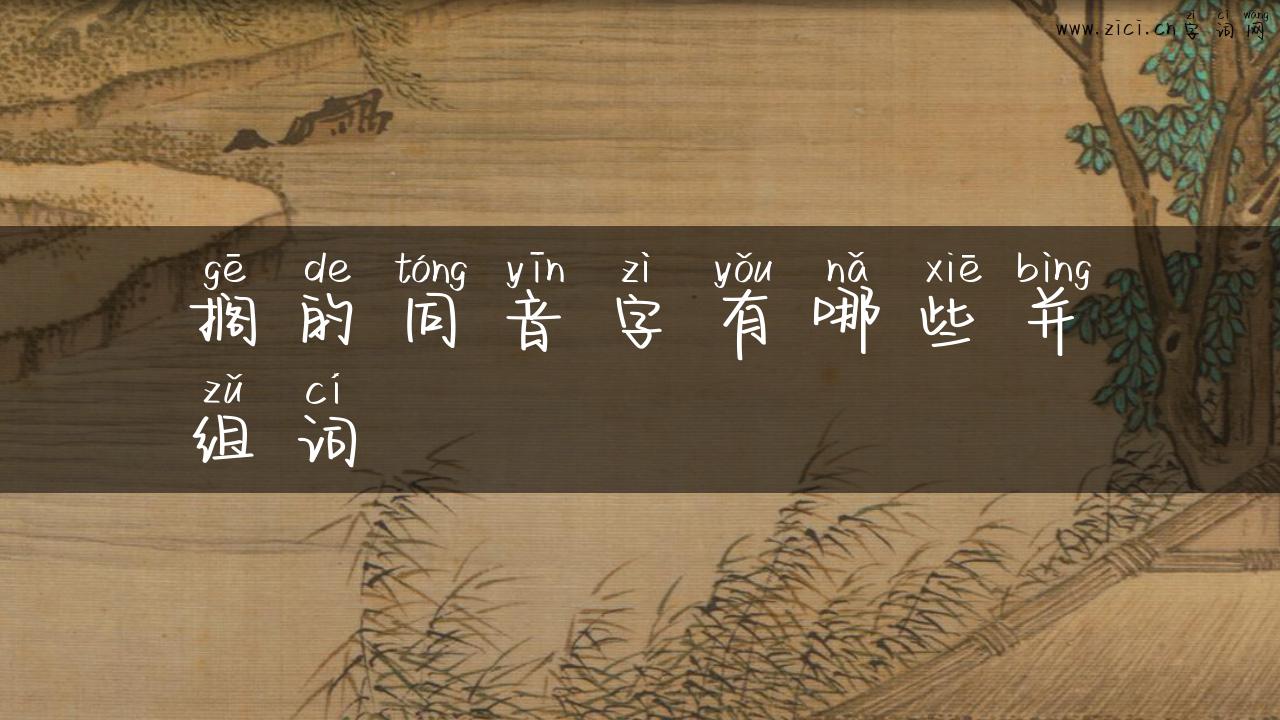 zì cí wǎng
www.zici.cn字词网
gē de tóng yīn zì yǒu nǎ xiē bìng
搁的同音字有哪些并
zǔ cí
组词